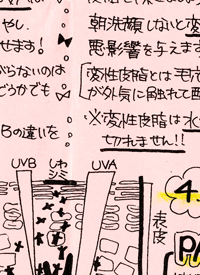 やし.
せます!
がらないのは
どうかでも
Bの違いを
朝洗顔しないと変
悪影響を与えます
「変性皮脂とは毛
が外気に触れて
※変性皮脂は水
切れません!!
UVB
しわ
シミ
UVA
表皮
4.